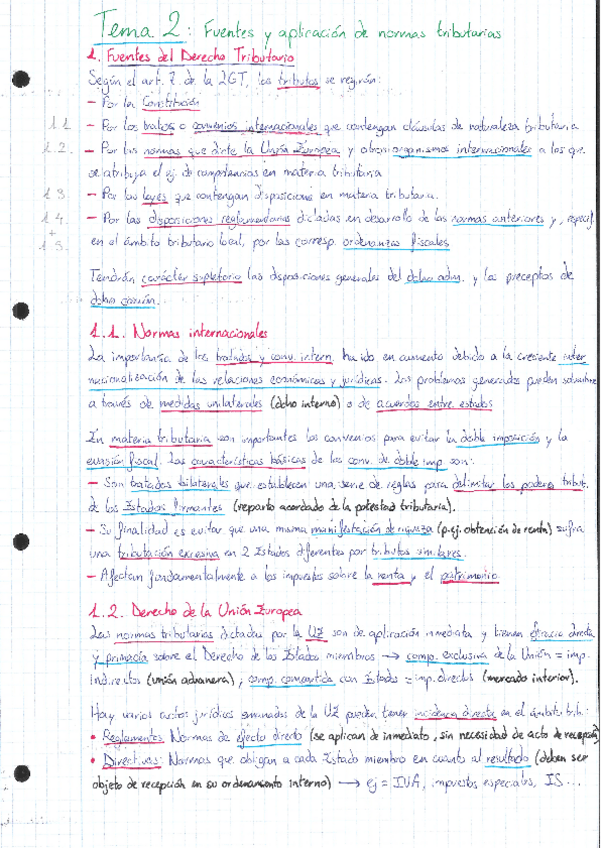 Tema 2: Fuentes y aplicación de normas tributarias
1. Fuentes del Derecho Tributario
Según el art. 7 de la LGT, los tributos se regirán:
- Por la Constitución
1.1. - Por los tratados o convenios internacionales que contengan cláusulas de naturaleza tributaria
1.2. - Por las normas que dicte la Unión Europea y otros organismos internacionales a los que
se atribuya el ej. de competencias en materia tributaria
1.3. - Por las leyes que contengan disposiciones en materia tributaria.
1.4. - Por las disposiciones reglamentarias dictadas en desarrollo de las normas anteriores y, especif.
+
1.5. en el ámbito tributario local, por las corresp. ordenanzas fiscales
Tendrán carácter supletorio las disposiciones generales del dcho adm. y los preceptos de
dcho común.
1.1. Normas internacionales
La importancia de los tratados y conv. intern. ha ido en aumento debido a la creciente inter
nacionalización de las relaciones económicas y jurídicas. Los problemas generados pueden solventarse
a través de medidas unilaterales (dcho interno) o de acuerdos entre estados
En materia tributaria son importantes los convenios para evitar la doble imposición y la
evasión fiscal. Las características básicas de los conv. de doble imp. son:
- Son tratados bilaterales que establecen una serie de reglas para delimitar los poderes tribut.
de los Estados firmantes (reparto acordado de la potestad tributaria).
- Su finalidad es evitar que una misma manifestación de riqueza (p.ej. obtención de renta) sufra
una tributación excesiva en 2 Estados diferentes por tributos similares.
- Afectan fundamentalmente a los impuestos sobre la renta y el patrimonio.
1.2. Derecho de la Unión Europea
Las normas tributarias dictadas por la UE son de aplicación inmediata y tienen eficacia directa
y primacía sobre el Derecho de los Estados miembros → comp. exclusiva de la Unión = imp.
indirectos (unión aduanera), comp. compartida con Estados = imp. directos (mercado interior).
Hay varios actos jurídicos emanados de la UE pueden tener incidencia directa en el ámbito trib.:
• Reglamentos: Normas de efecto directo (se aplican de inmediato, sin necesidad de acto de recepción)
• Directivas: Normas que obligan a cada Estado miembro en cuanto al resultado (deben ser
objeto de recepción en su ordenamiento interno) → ej = IVA, impuestos especiales, IS...